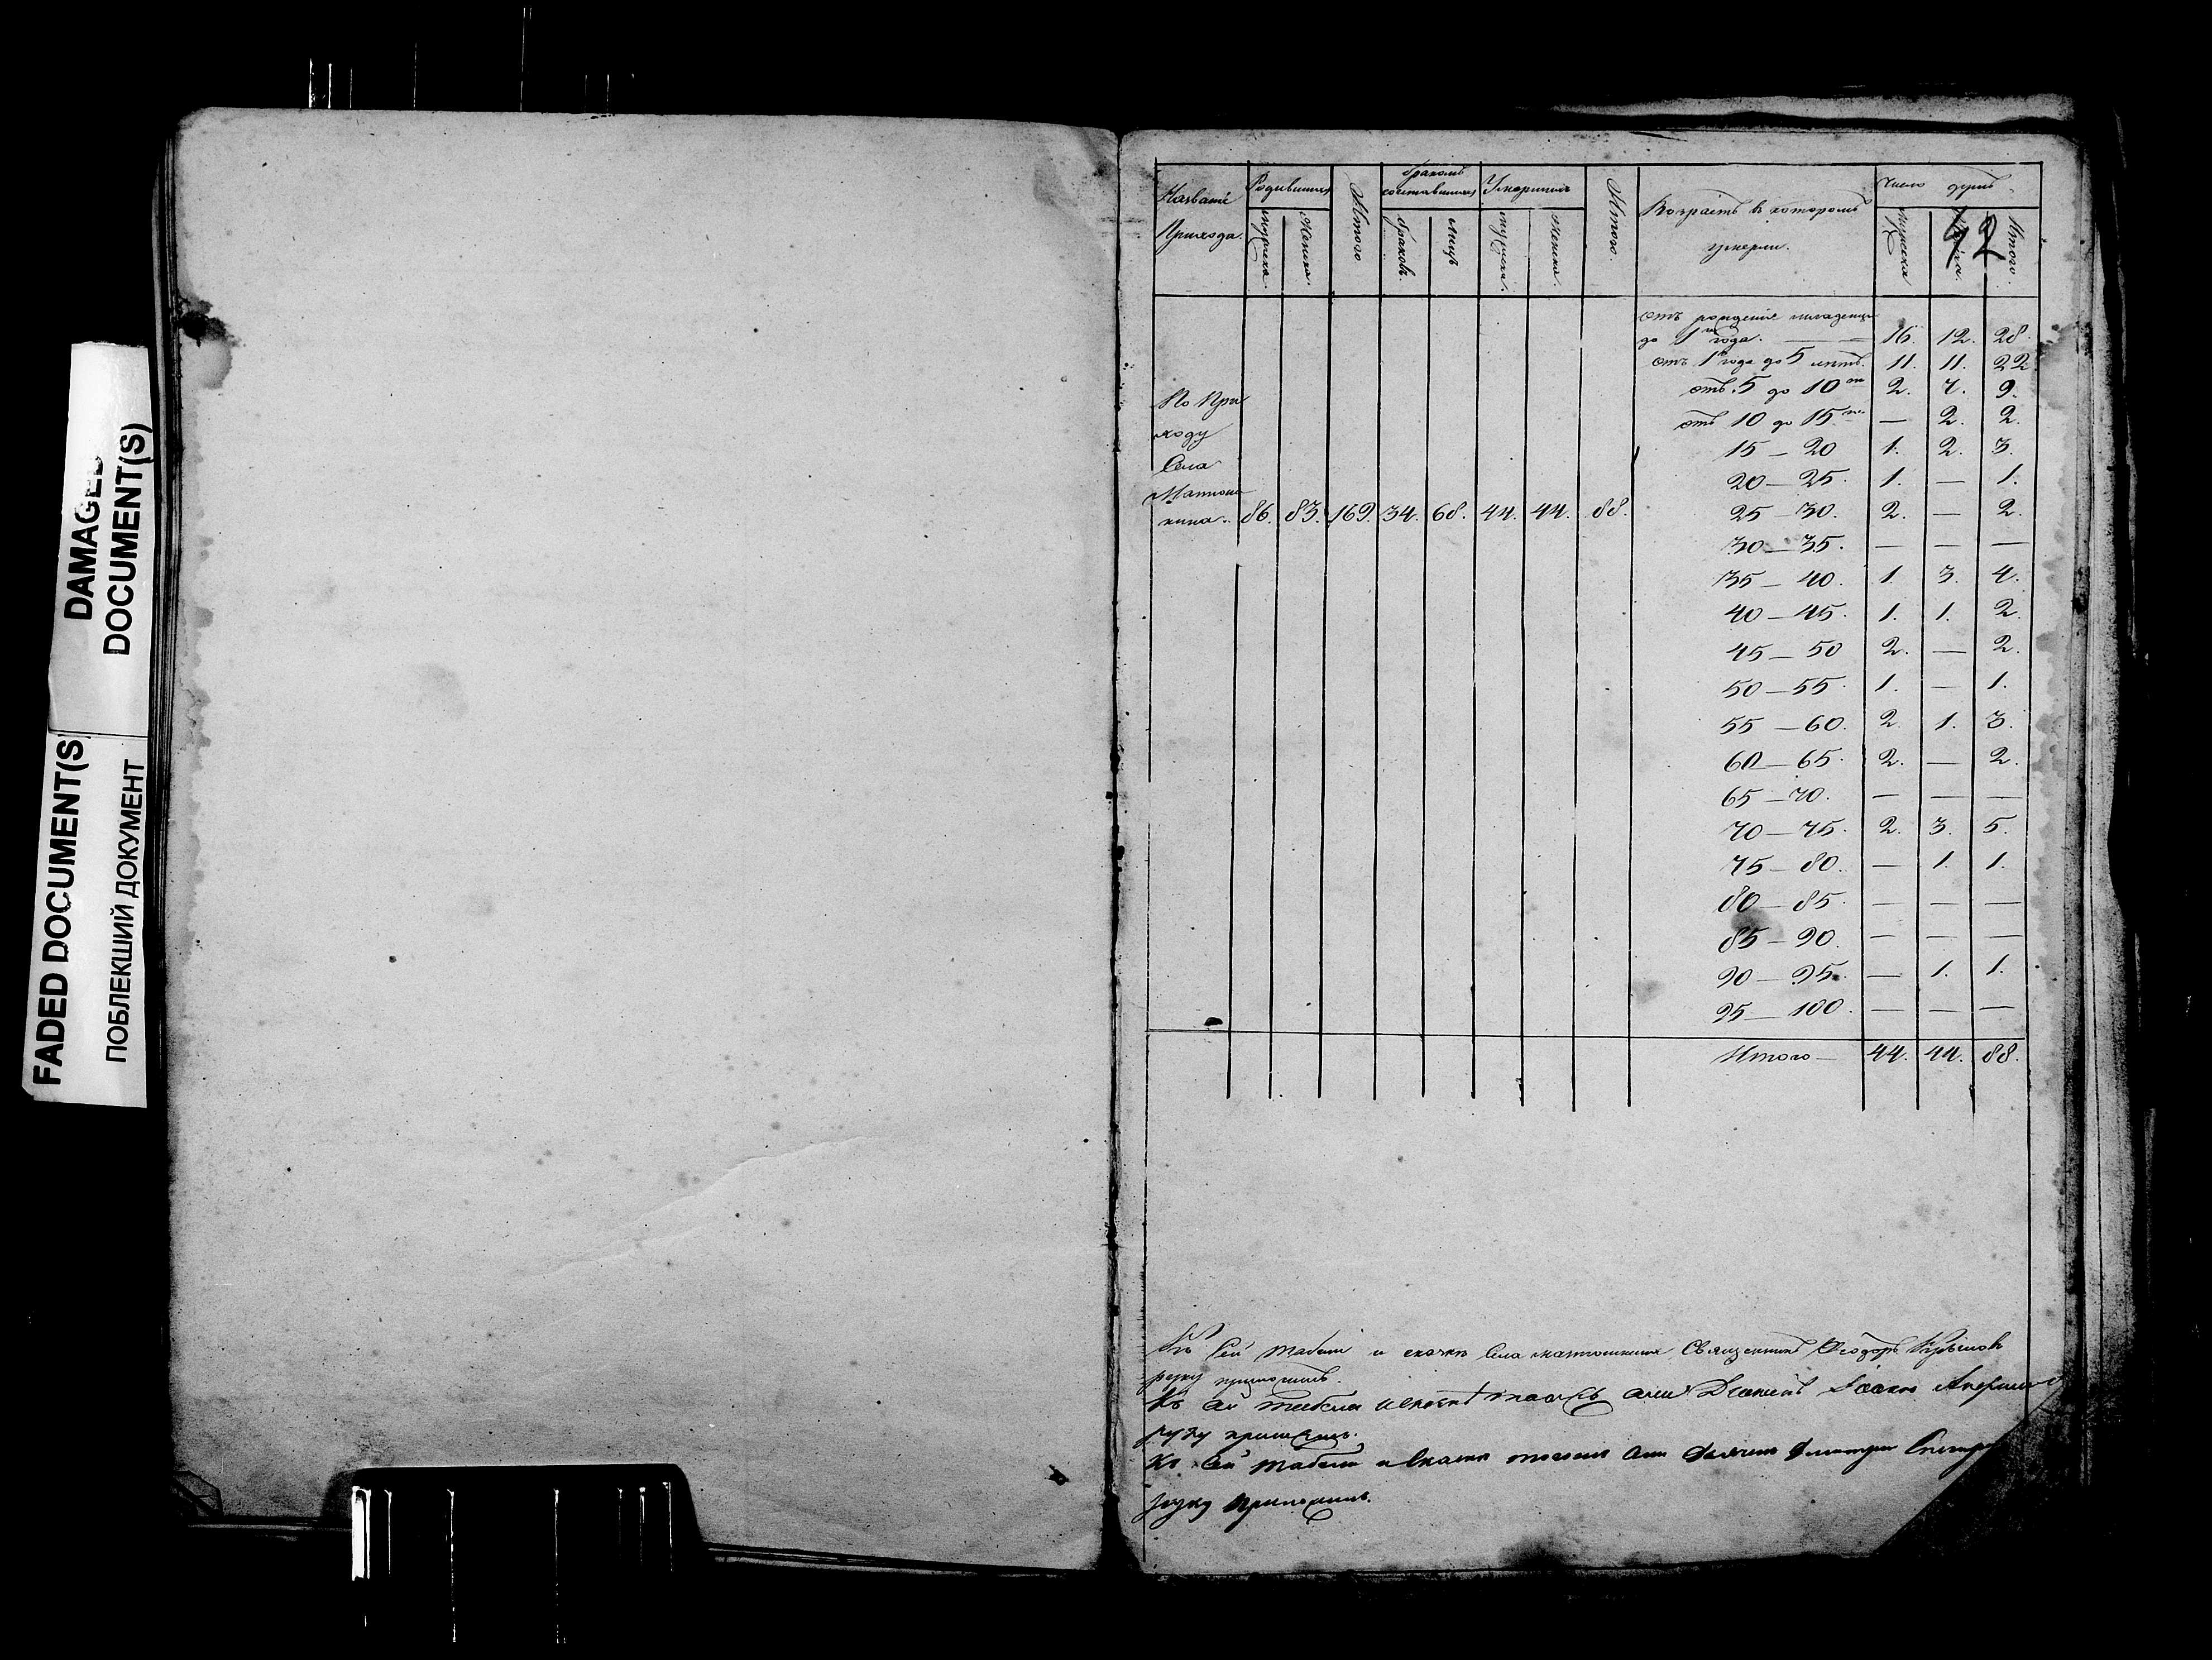 DAMAGED
DOCUMENT(S)
FADED DOCUMENT(S
ПОБЛЕКШИЙ ДОКУМЕНТ
92
Названіе Прихода.
Родившихся
мужеска
Женска
Итого
бракомъ сочетавшихся
браковъ.
лицъ
Умершихъ
мужеска
женска
Итого.
Возрастъ въ которомъ умерли.
Число душъ
мужеска
Итого.
По При
ходу
Села
86. 83. 169. 34. 68. 44. 44. 88.
отъ рожденія младенцы
до 1 го года. — 16. 12. 28.
отъ 1 го года до 5 летъ. 11. 11. 22
отъ 5 до 10 ти 2. 7. 9.
отъ 10 до 15 ти — 2. 2.
15 — 20 1. 2. 3.
20 — 25. 1. — 1.
25 — 30. 2. — 2.
30 — 35. — — —
35 — 40. 1. 3. 4.
40 — 45. 1. 1. 2.
45 — 50 2. — 2.
50 — 55. 1. — 1.
55 — 60. 2. 1. 3.
60 — 65. 2. — 2.
65 — 70. — — —
70 — 75. 2. 3. 5.
75 — 80. — 1. 1.
80 — 85. — — —
85 — 90. — — —
90 — 95. — 1. 1.
95 — 100. — — —
Итого — 44. 44. 88.
Къ сей табели и скаски Села Священникъ Ѳеодоръ
руку приложилъ.
Къ сей табели
руку приложилъ.
Къ сей табели и
руку приложилъ.